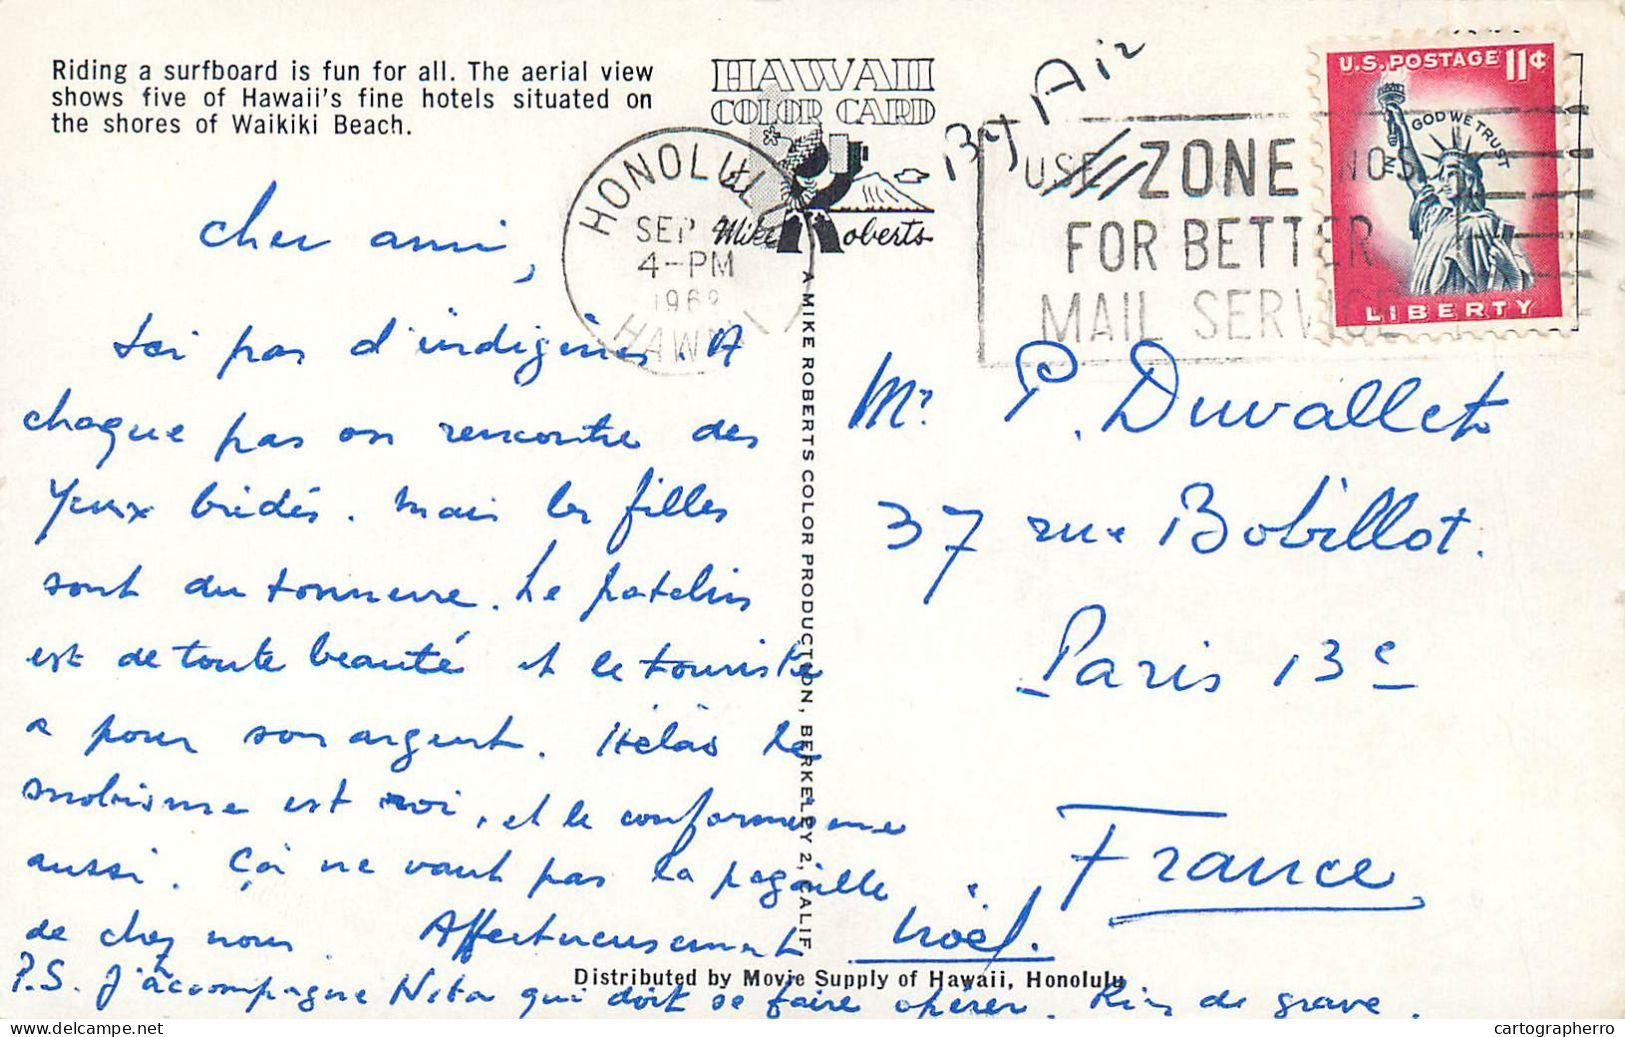 Riding a surfboard is fun for all. The aerial view
shows five of Hawaii's fine hotels situated on
the shores of Waikiki Beach.
HAWAII
COLOR CARD
Mike Roberts
By Air
HONOLULU
SEP
4-PM
HAWAII
USE ZONE NOS.
FOR BETTER
MAIL SERVICE
U.S. POSTAGE 11¢
IN GOD WE TRUST
LIBERTY
cher ami,
Ici pas d'indigènes. A
chaque pas on rencontre des
yeux bridés. Mais les filles
sont du tonnerre. Le patelin
est de toute beauté et le touriste
a pour son argent. Hélas le
snobisme est roi, et le conformisme
aussi. Ça ne vaut pas la pagaille
de chez nous. Affectueusement
Noël.
P.S. J'accompagne qui doit se faire opérer. Rien de grave.
A MIKE ROBERTS COLOR PRODUCTION, BERKELEY 2, CALIF
Mr P. Duvallet
37 rue Bobillot.
Paris 13e
France
Distributed by Movie Supply of Hawaii, Honolulu
cartographerro